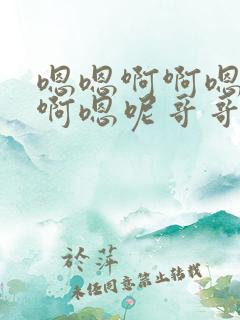 嗯嗯啊啊嗯
啊嗯呢哥哥
於萍
未经同意禁止转载